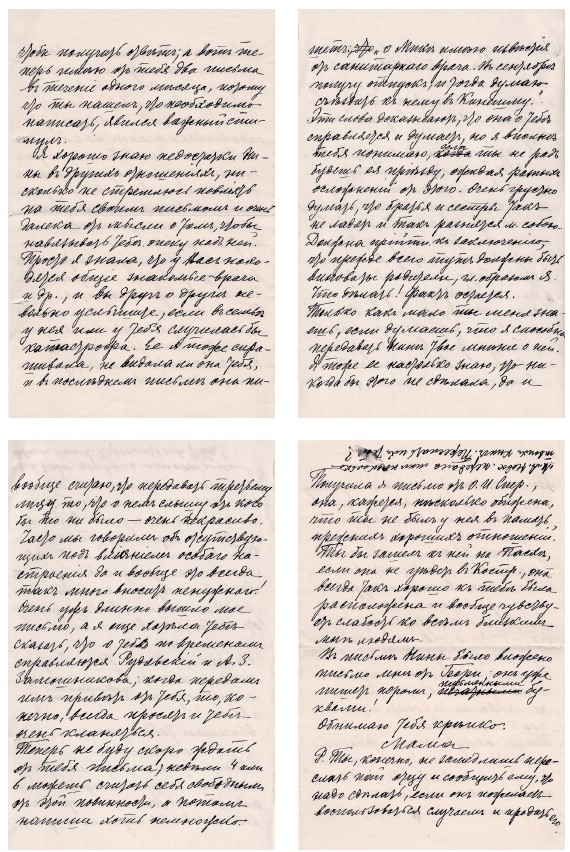 чтобы получить отвѣтъ; а вотъ те-
перь имѣю отъ тебя два письма
въ теченіе одного мѣсяца, потому
что ты нашелъ, что необходимо
написать, явился важный сти-
мулъ.
Я хорошо знаю недостатки Ни-
ны въ другихъ отношеніяхъ, ни-
сколько не стремлюсь повліять
на тебя своимъ письмомъ и очень
далека отъ мысли о томъ, чтобы
навязывать тебѣ опеку надъ ней.
Просто я знала, что у васъ нахо-
дятся общіе знакомые – врачи
и др., и вы другъ о другѣ не-
вольно услышите, если бы съ вами
у нея или у тебя случилась бы
катастрофа. Ее я тоже спра-
шивала, не видала ли она тебя,
и въ послѣднемъ письмѣ она пи-
шетъ: „о Микѣ имѣю извѣстія
отъ санитарнаго врача. Въ сентябрѣ
получу отпускъ и тогда думаю
съѣздить къ нему въ Кинешму."
Эти слова доказываютъ, что она о тебѣ
справляется и думаетъ, но я вполнѣ
тебя понимаю, если ты не радъ
будешь ея пріѣзду, ожидая разныхъ
осложненій отъ этого. Очень грустно
думать, что братья и сестры такъ
не ладятъ и такъ разнятся м. собою.
Должна прійти къ заключенію,
что прежде всего тутъ должны быть
виноваты родители, гл. образомъ я.
Что дѣлать! Фактъ остается.
Только какъ мало ты меня зна-
ешь, если думаешь, что я способна
передавать Нинѣ твое мнѣніе о ней.
Я тоже ее настолько знаю, что ни-
когда бы этого не сдѣлала, да и
вообще считаю, что передавать третьему
лицу то, что о немъ слышу отъ кого
бы то ни было – очень некрасиво.
Часто мы говоримъ объ отсутствую-
щихъ подъ вліяніемъ особаго на-
строенія да и вообще это всегда
такъ много вноситъ ненужнаго!
Очень ужъ длинно вышло мое
письмо, а я еще хотѣла тебѣ
сказать, что о тебѣ по временамъ
справляются Рудовскій и А. З.
когда передаю
имъ привѣтъ отъ тебя, то, ко-
нечно, всегда просятъ и тебѣ
очень кланяться.
Теперь не буду скоро ждать
отъ тебя письма; недѣли 4 или
6 можешь считать себя свободнымъ
отъ этой повинности, а потомъ
напиши хоть немножко.
Получила я письмо отъ О. И. Стер.,
она, кажется, нѣсколько обижена,
что ты не былъ у нея въ память
прежнихъ хорошихъ отношеній.
Ты бы заѣхалъ къ ней на Пасхѣ,
если она не уѣдетъ въ Костр., она
всегда такъ хорошо къ тебѣ была
расположена и вообще чувству-
етъ слабость ко всѣмъ близкимъ
мнѣ людямъ.
Въ письмѣ Нины было вложено
письмо мнѣ отъ Бори; онъ уже
пишетъ перомъ, письменными бу-
квами!
Обнимаю тебя крѣпко.
Мама
P. Ты, конечно, не замедлишь пере-
слать папѣ и сообщить ему, что
надо сдѣлать, если онъ пожелаетъ
воспользоваться случаемъ и продать его.